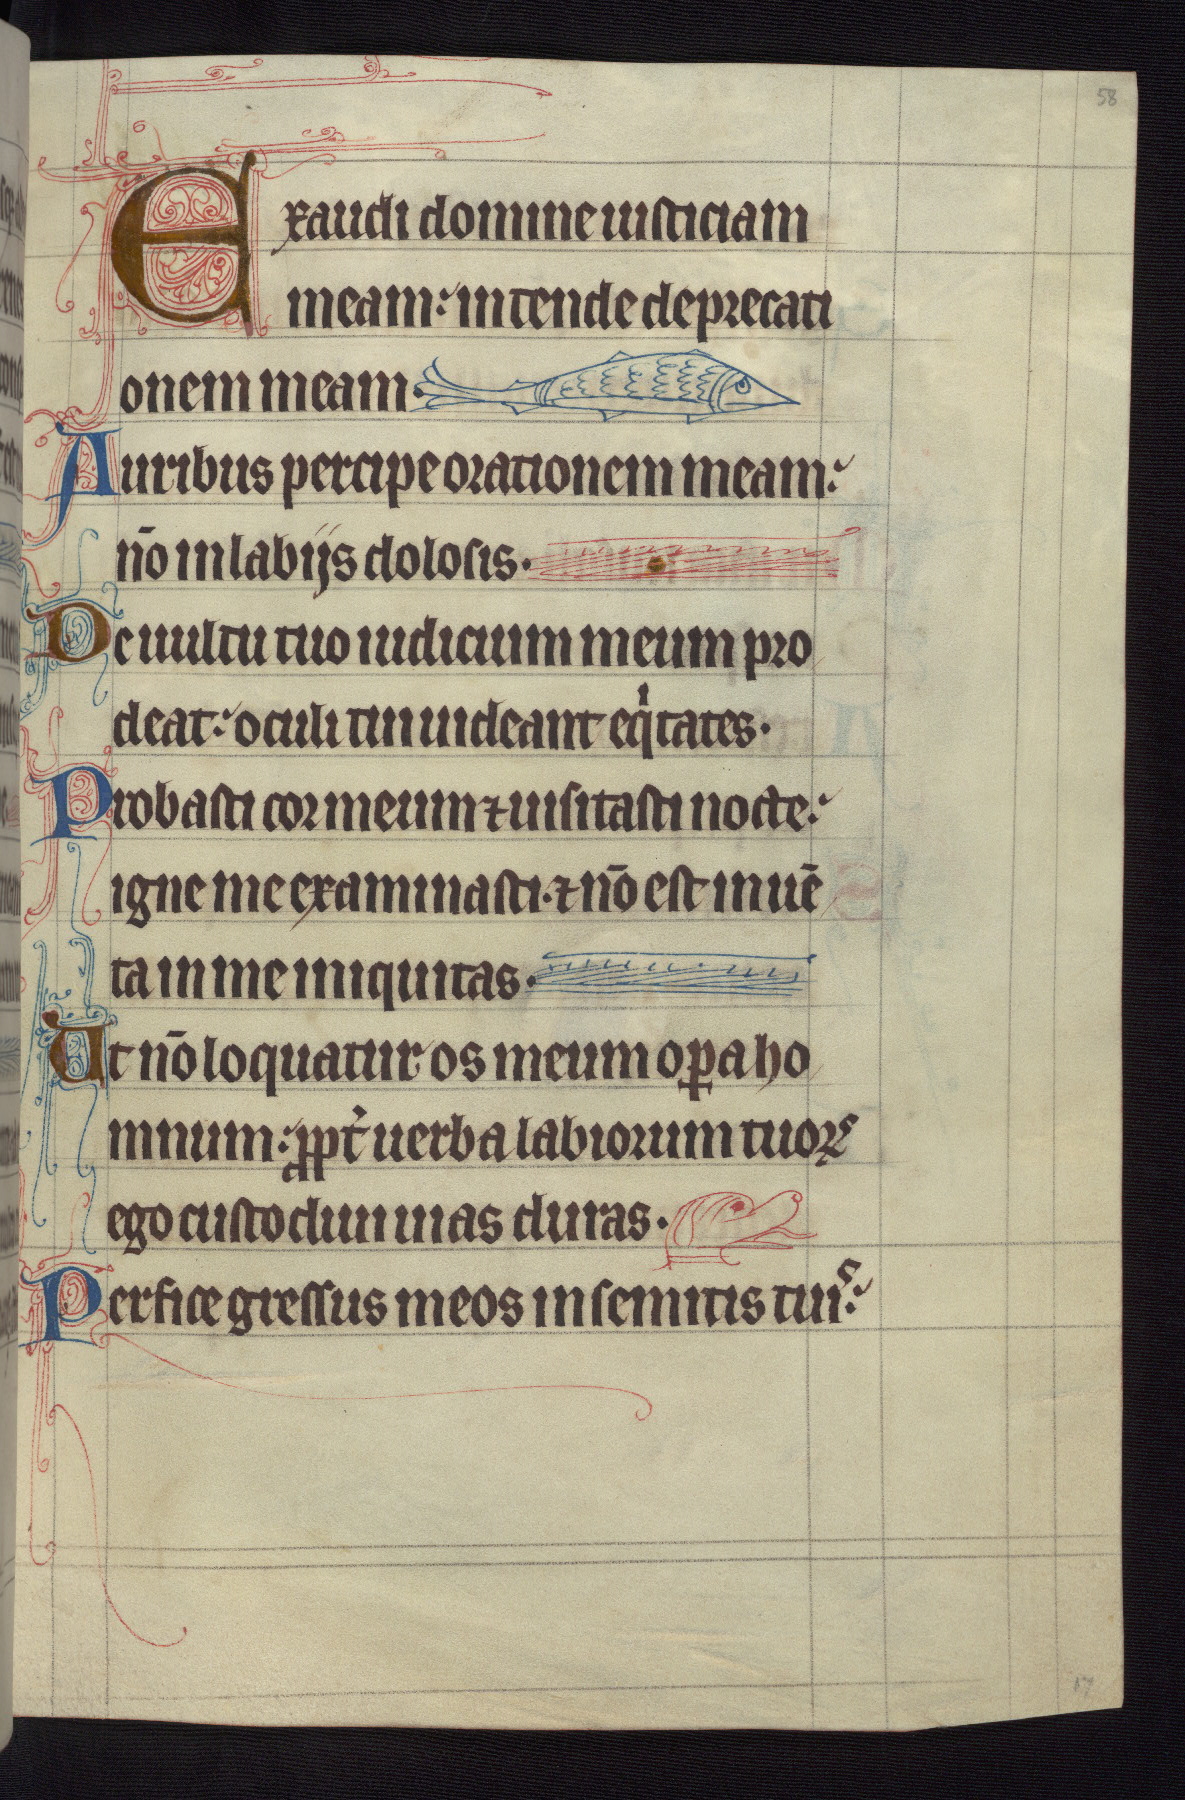 58
Exaudi domine iusticiam
meam: intende deprecati
onem meam.
Auribus percipe orationem meam:
nō in labijs dolosis.
De uultu tuo iudicium meum pro
deat: oculi tui uideant eqͥtates.
Probasti cor meum ⁊ uisitasti nocte:
igne me examinasti. ⁊ nō est inuē
ta in me iniquitas.
Ut nō loquatur os meum oꝑa ho
minum: ꝓpt̾ uerba labiorum tuoꝝ
ego custodiui uias duras.
Perfice gressus meos in semitis tuis:
17